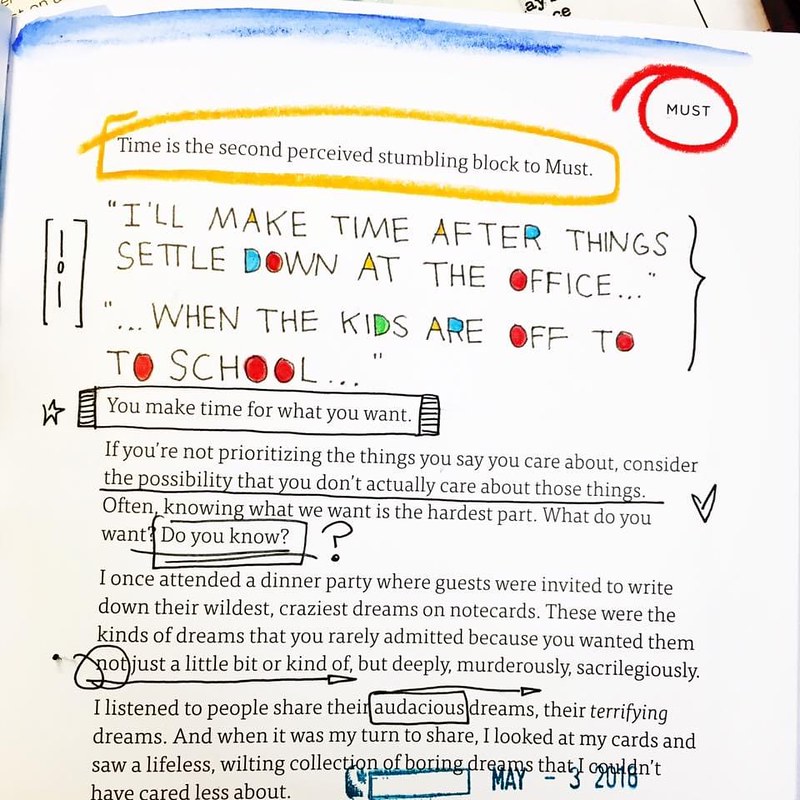 MUST
Time is the second perceived stumbling block to Must.
"I'LL MAKE TIME AFTER THINGS
SETTLE DOWN AT THE OFFICE..."
"...WHEN THE KIDS ARE OFF TO
TO SCHOOL..."
You make time for what you want.
If you're not prioritizing the things you say you care about, consider
the possibility that you don't actually care about those things.
Often, knowing what we want is the hardest part. What do you
want? Do you know? ?
I once attended a dinner party where guests were invited to write
down their wildest, craziest dreams on notecards. These were the
kinds of dreams that you rarely admitted because you wanted them
not just a little bit or kind of, but deeply, murderously, sacrilegiously.
I listened to people share their audacious dreams, their terrifying
dreams. And when it was my turn to share, I looked at my cards and
saw a lifeless, wilting collection of boring dreams that I couldn't
have cared less about.
MAY - 3 2016